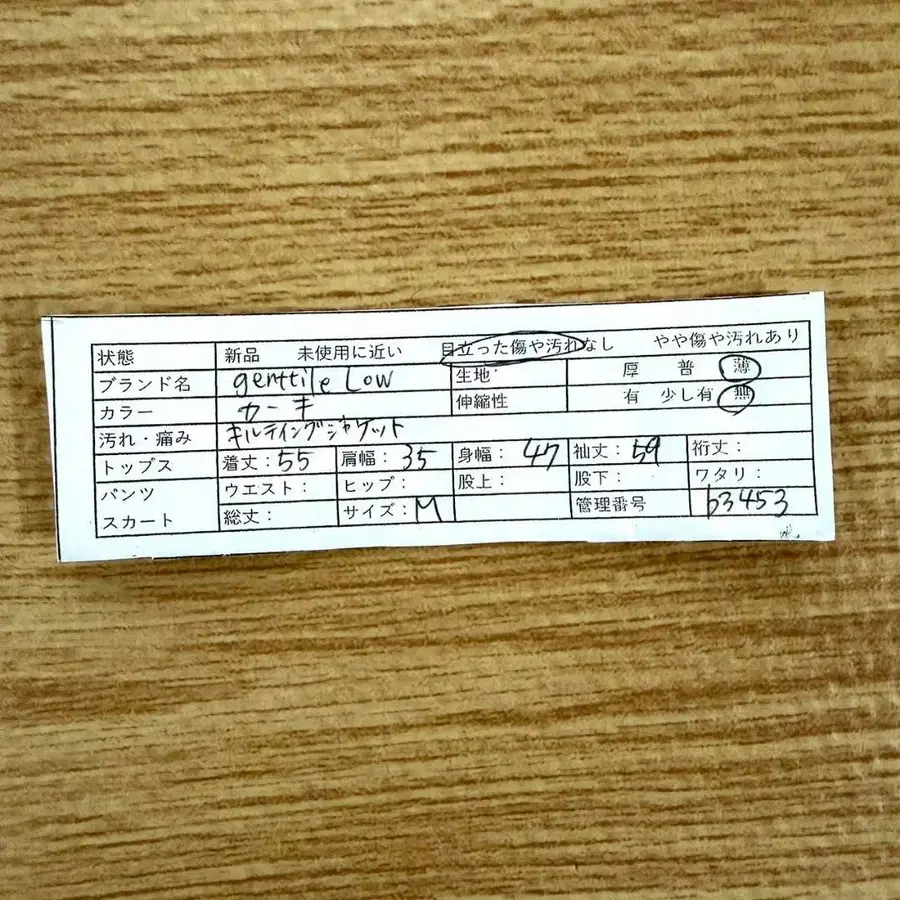 状態 新品 未使用に近い 目立った傷や汚れなし やや傷や汚れあり
ブランド名 genttile Low 生地 厚 普 薄
カラー カーキ 伸縮性 有 少し有 無
汚れ・痛み キルティングジャケット
トップス 着丈:55 肩幅:35 身幅:47 袖丈:59 裄丈:
パンツ ウエスト: ヒップ: 股上: 股下: ワタリ:
スカート 総丈: サイズ:M 管理番号 b3453